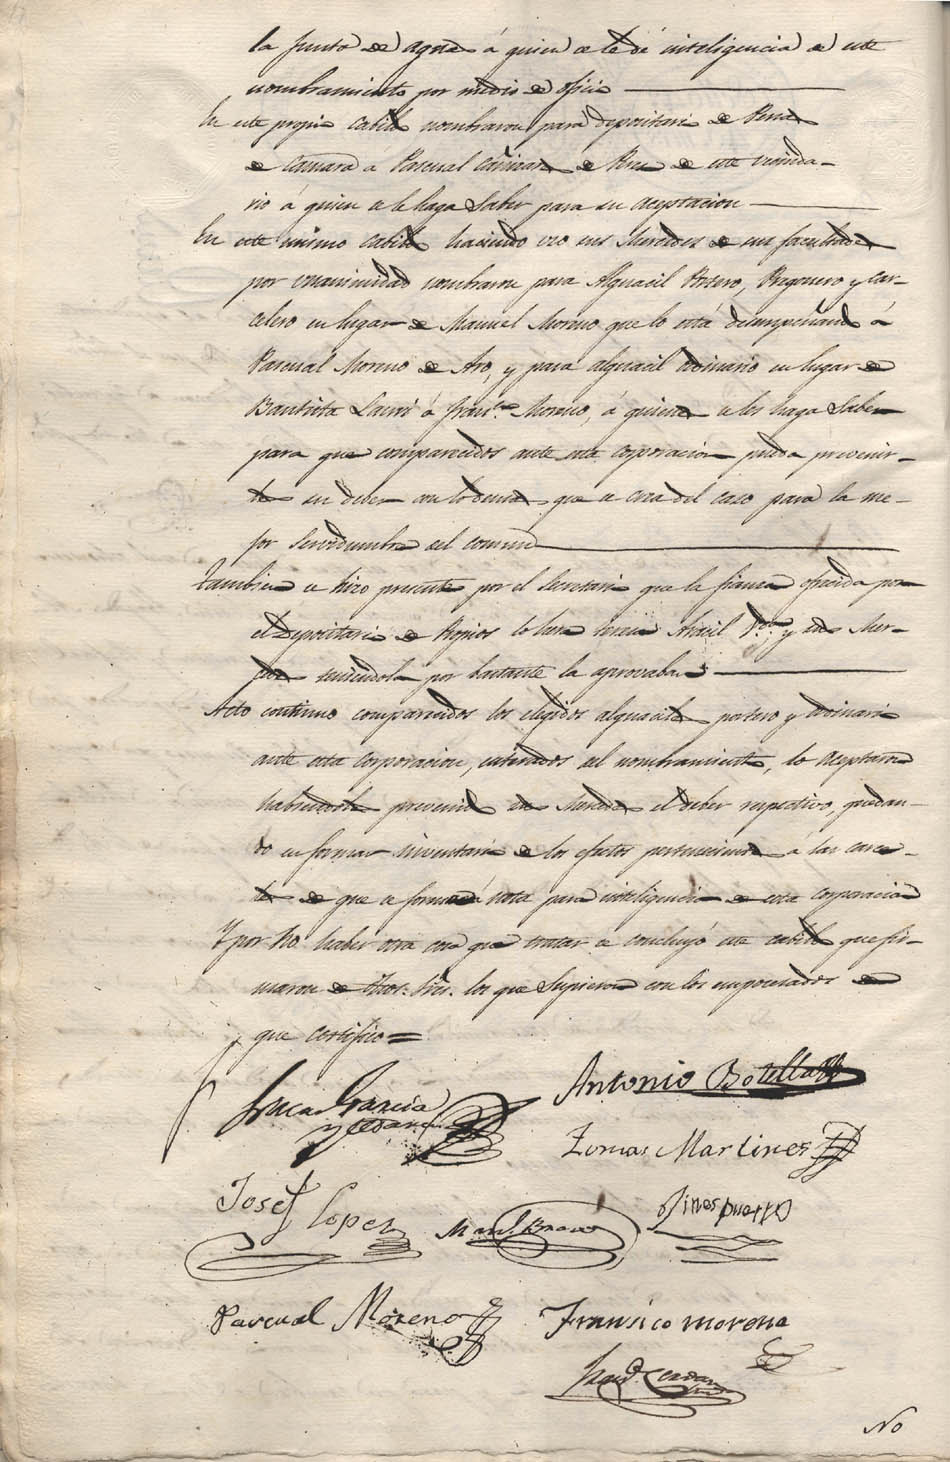 la Junta de aguas á quien se le dé inteligencia de este
nombramiento por medio de oficio
En este propio Cabildo nombraron para depositario de Penas
de Camara á Pascual Cañizares de Rex de este vecinda-
rio á quien se le haga Saber para su aceptacion
En este mismo Cabildo haciendo uso sus Mercedes de sus facultades
por unanimidad nombraron para Alguacil Portero, Pregonero y Car-
celero en lugar de Manuel Moreno que lo está desempeñando á
Pascual Moreno de Aro, y para alguacil ordinario en lugar de
Bautista Lauri á Franco. Moreno, á quienes se les haga Saber
para que comparecidos ante esta corporacion pueda prevenir-
les su deber con lo demas que se crea del caso para la me-
jor Servidumbre del comun
Tambien se hizo presente por el Secretario que la fianza ofrecida por
el Depositario de Propios lo era Aracil y sus Mer-
cedes teniendola por bastante la aprovaban
Acto continuo comparecidos los elejidos alguaciles portero y ordinario
ante esta corporacion, enterados del nombramiento, lo aceptaron
habiendoles prevenido sus Mercedes el deber respectivo, quedan-
do en formar inventario de los efectos pertenecientes á las carce-
les de que se formará nota para inteligencia de esta corporacion
Y por no haber otra cosa que tratar se concluyó este cabildo que fir-
maron de dhos. Sres. los que Supieron con los empoderados de
que certifico=
Antonio Botella
Luca Garcia
y Cedan
Tomas Martines
Josef Lopez
Manl Bravo
Jines puerto
Pascual Moreno
Francisco morena
Franco Cerdan
No